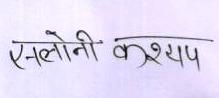 सलोनी कश्यप